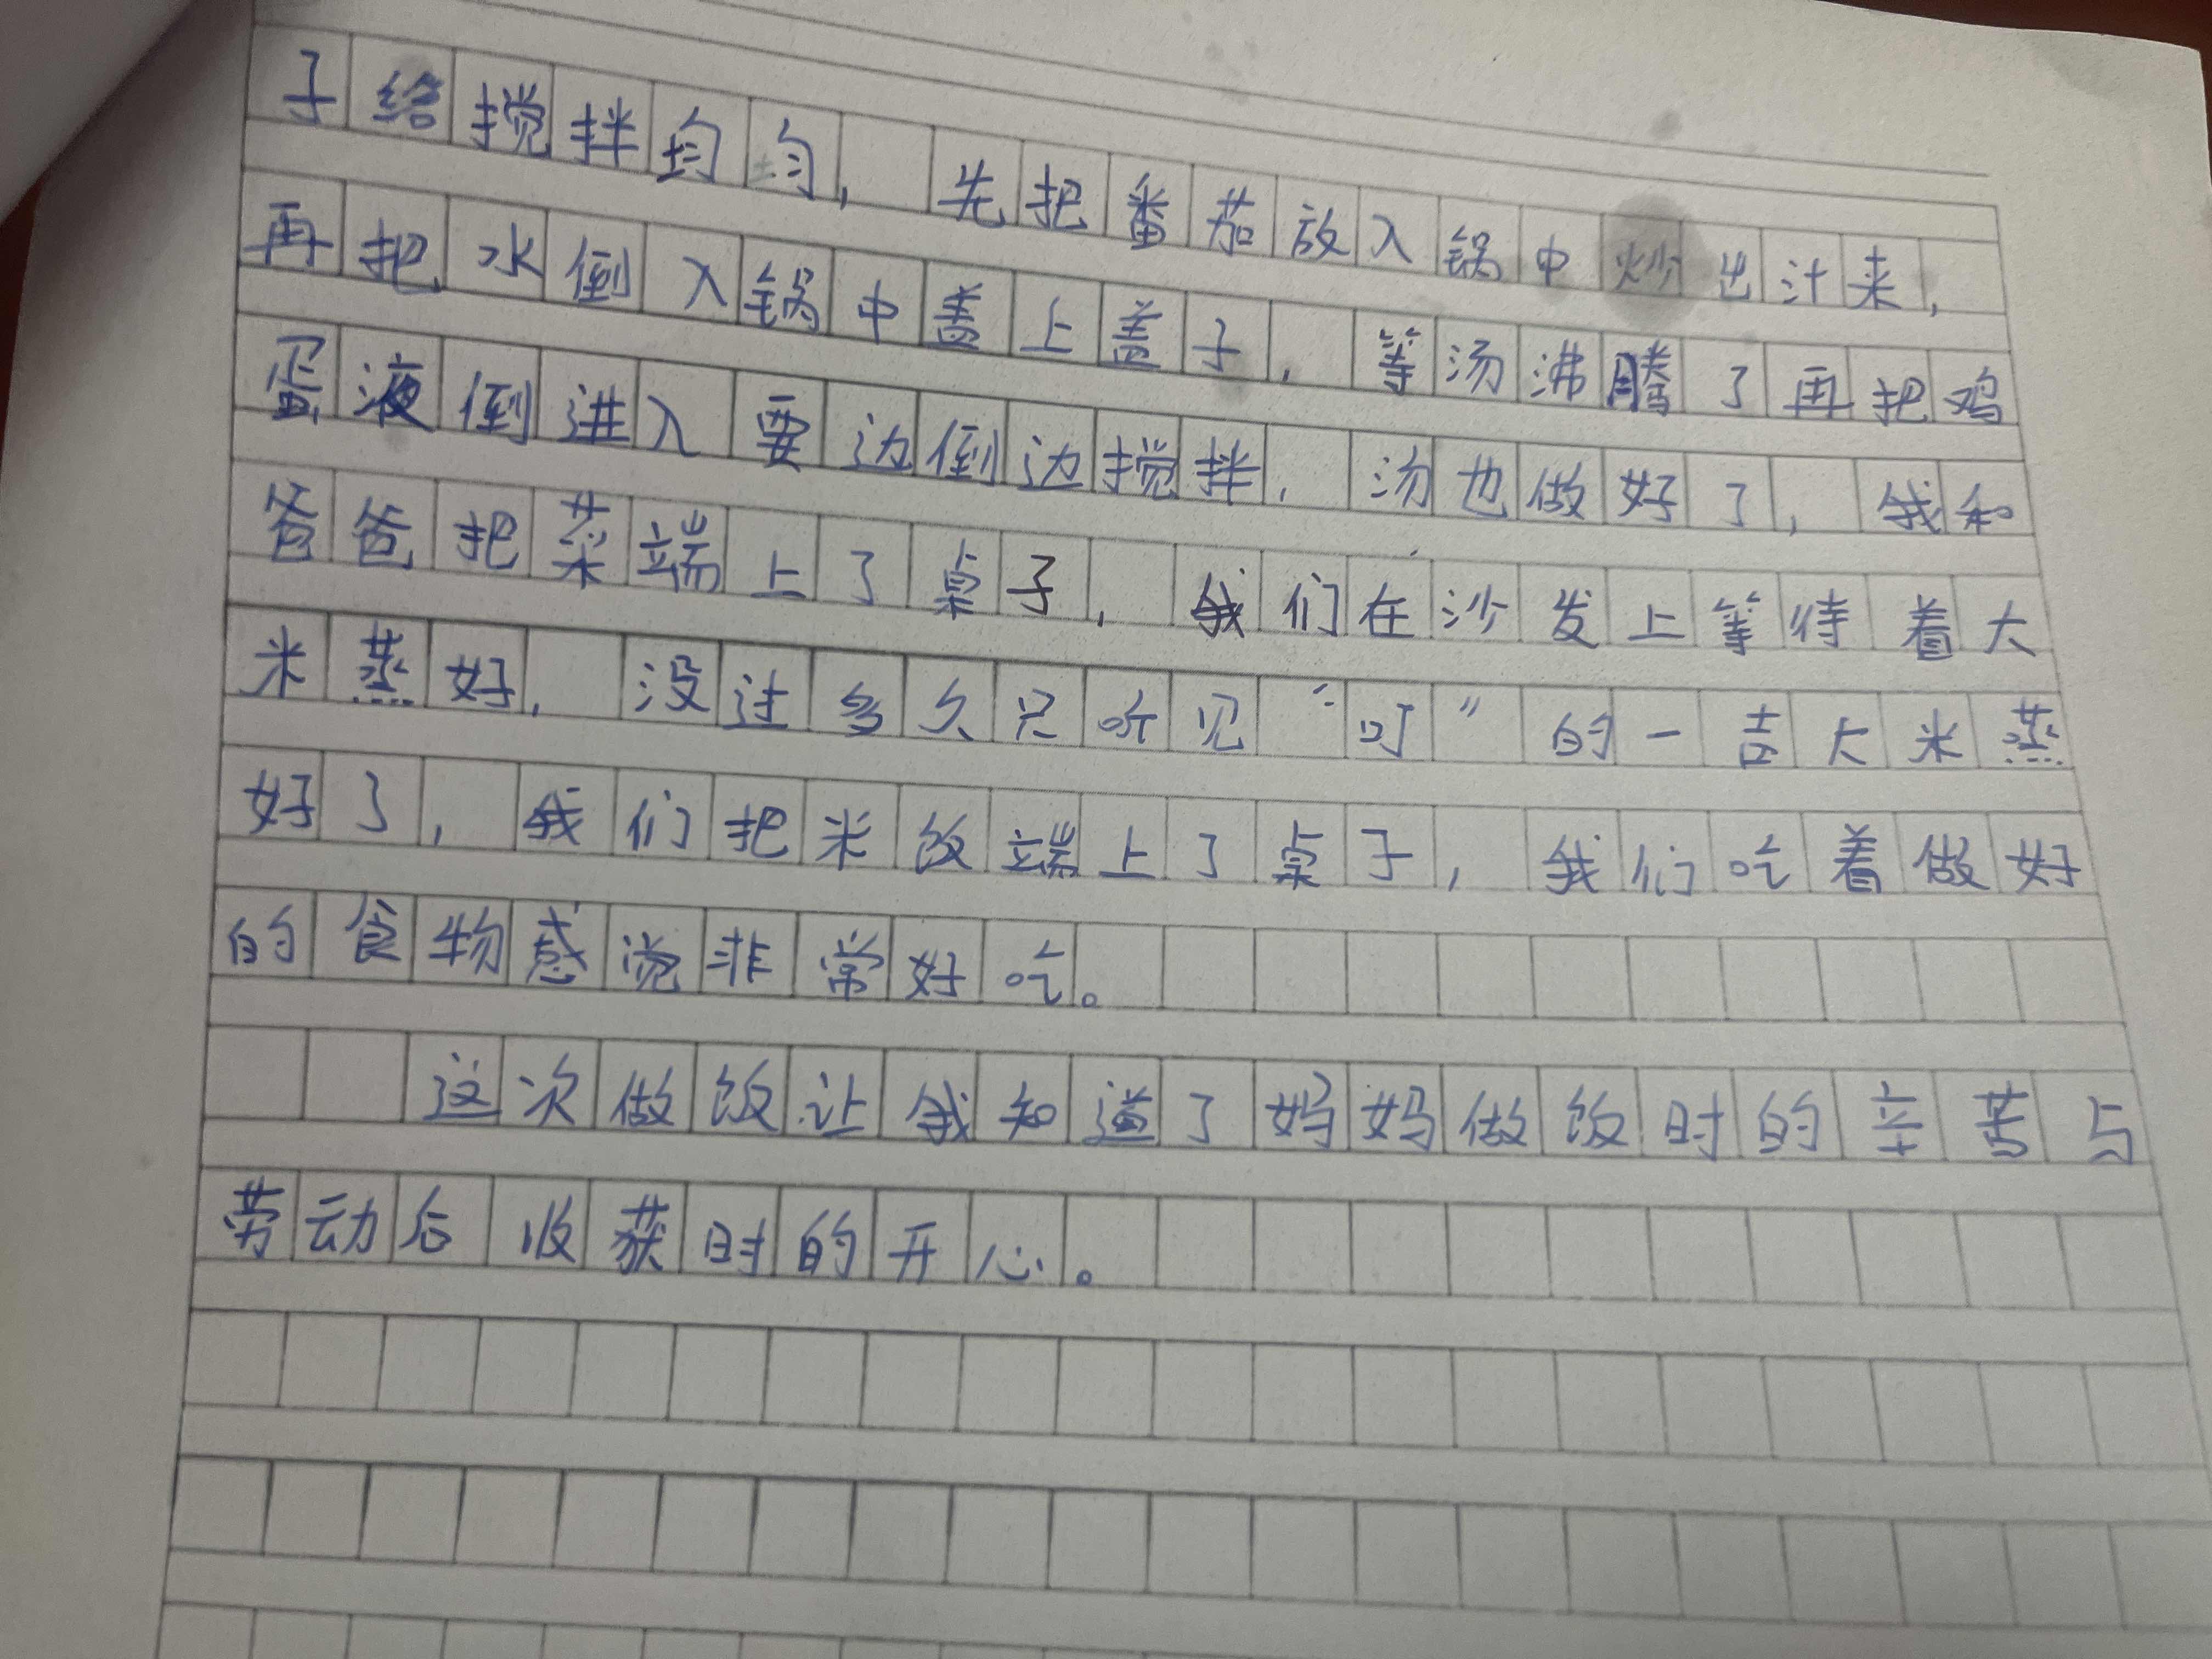 子给搅拌均匀，先把番茄放入锅中炒出汁来，
再把水倒入锅中盖上盖子，等汤沸腾了再把鸡
蛋液倒进入要边倒边搅拌，汤也做好了，我和
爸爸把菜端上了桌子，我们在沙发上等待着大
米蒸好，没过多久只听见“叮”的一声大米蒸
好了，我们把米饭端上了桌子，我们吃着做好
的食物感觉非常好吃。
这次做饭让我知道了妈妈做饭时的辛苦与
劳动后收获时的开心。